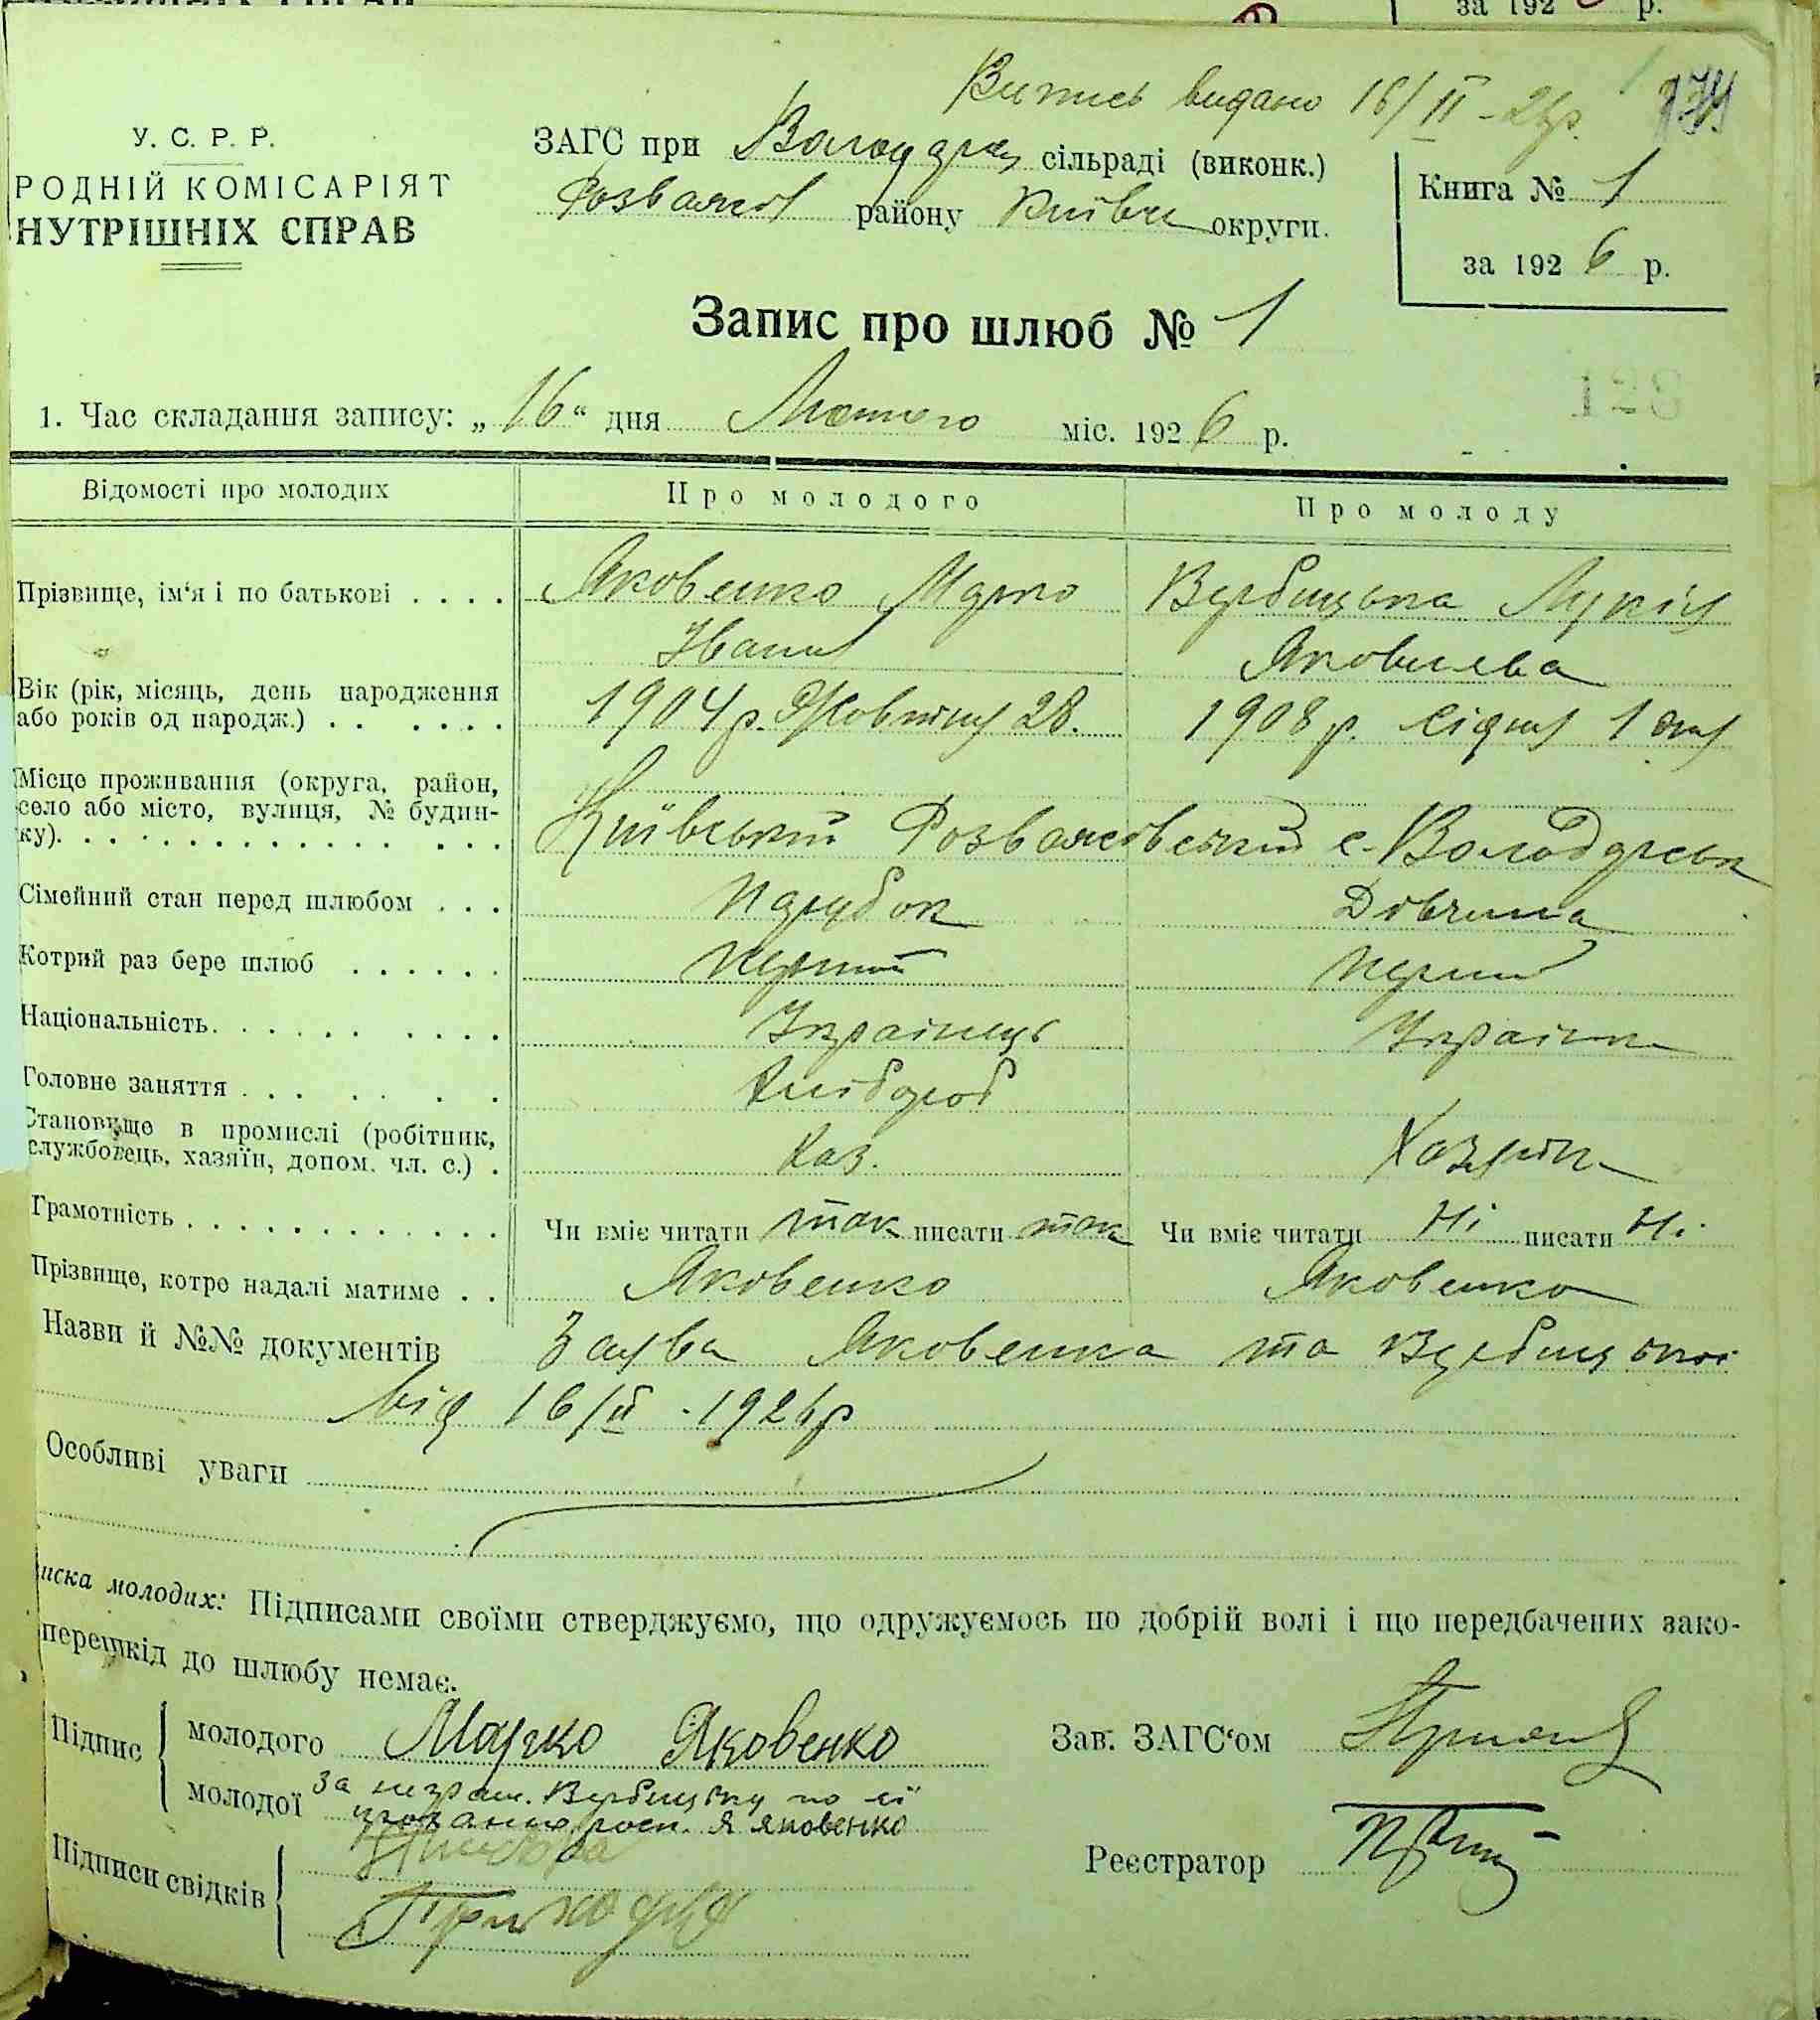 за 192 р.
Витись видано 16/II-26р. 174
У. С. Р. Р.
РОДНІЙ КОМІСАРІЯТ
НУТРІШНІХ СПРАВ
ЗАГС при сільраді (виконк.)
Розважів району Київськ округи.
Книга № 1
за 192 6 р.
Запис про шлюб № 1
1. Час складання запису: „16“ дня Лютого міс. 192 6 р.
Відомості про молодих Про молодого Про молоду
Прізвище, ім‘я і по батькові . . . . Яковенко Марко Вербицька Лукія
Іванів Яковлева
Вік (рік, місяць, день народження
або років од народж.) . . . . . . 1904 р. Жовтня 28. 1908 р. Січня 1 дня
Місце проживання (округа, район,
село або місто, вулиця, № будин-
ку). Київський Розважівський с. Володарськ
Сімейний стан перед шлюбом . . . Парубок Дівчина
Котрий раз бере шлюб . . . . . . Перший Перший
Національність. Українець Українка
Головне заняття Хлібороб
Становище в промислі (робітник,
службовець, хазяїн, допом. чл. с.) . Хаз. Хазяйка
Грамотність Чи вміє читати так писати так Чи вміє читати Ні писати Ні
Прізвище, котре надалі матиме . . Яковенко Яковенко
Назви й №№ документів Заява Яковенка та Вербицької
від 16/II-1926р
Особливі уваги
иска молодих: Підписами своїми стверджуємо, що одружуємось по добрій волі і що передбачених зако-
перешкід до шлюбу немає.
Підпис молодого Марко Яковенко Зав. ЗАГС‘ом
молодої За неграм. Вербицьку по її
проханню росп. Я Яковенко
Підписи свідків Реєстратор
Приходько